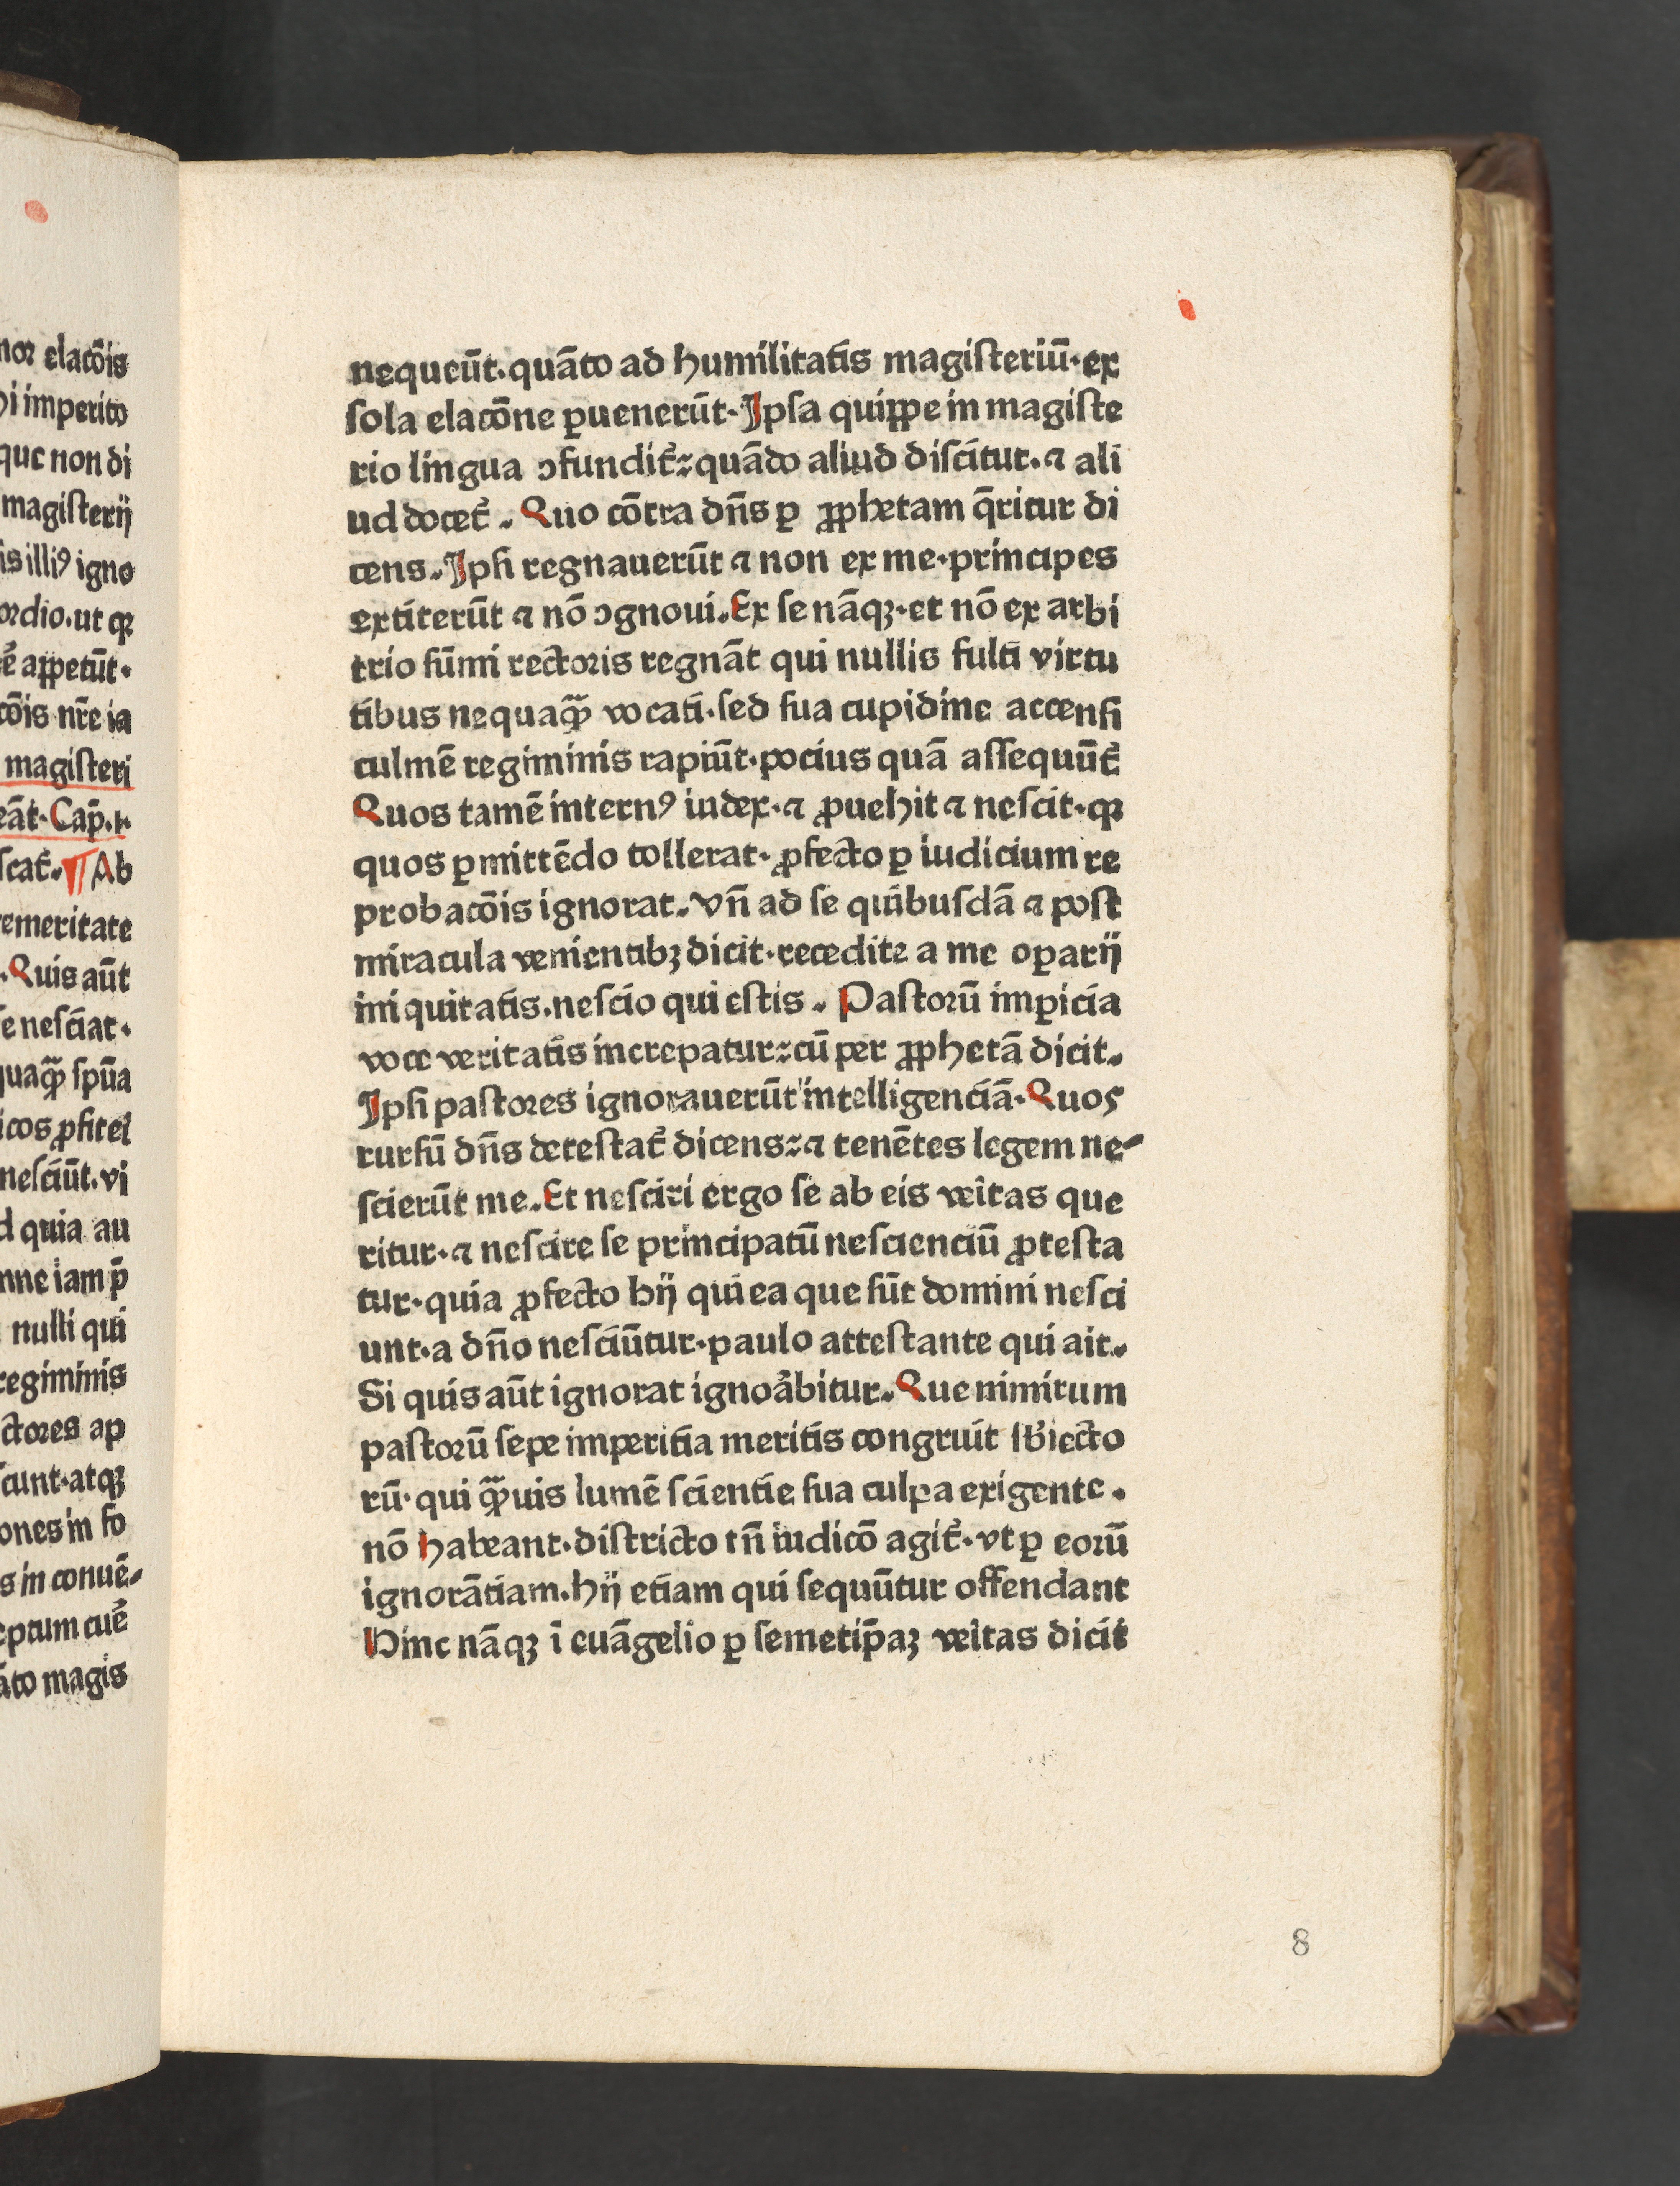 nor elac̄ois
hi imperito
que non di
magisterij
is illiꝰ igno
ordio.ut ꝙ
ē appetūt.
c̄ois nr̄e ia
magisteri
eāt. Cap̄.i.
scat̄. ¶ Ab
temeritate
.Quis aūt
se nesciat.
quaqꝫ sp̄ua
icos ꝓfitel
nesciūt.vi
d quia au
nne iam p̄
nulli qui
regiminis
ctores ap
cunt.atqꝫ
ones in fo
s in conuē-
eptum cuē
āto magis
nequeūt.quāto ad humilitatis magisteriū.ex
sola elac̄one ꝑuenerūt.Ipsa quippe in magiste
rio lingua ↄfundit̄: quādo aliud discitur.⁊ ali
ud docet̄. Quo cōtra dn̄s ꝑ ꝓphetam q̄ritur di
cens.Ipsi regnauerūt ⁊ non ex me.principes
extiterūt ⁊ nō ↄgnoui.Ex se nāqꝫ.et nō ex arbi
trio sūmi rectoris regnāt qui nullis fulti virtu
tibus nequaqꝫ vocati.sed sua cupidine accensi
culmē regiminis rapiūt.pocius quā assequūt̄
Quos tamē internꝰ iudex.⁊ ꝓuehit ⁊ nescit.ꝙ
quos ꝑmittēdo tollerat.ꝓfecto ꝑ iudicium re
probac̄ois ignorat.vn̄ ad se quibusdā ⁊ post
miracula venientibꝫ dicit.recedite a me oꝑarij
iniquitatis.nescio qui estis. Pastorū imꝑicia
voce veritatis increpatur: cū per ꝓphetā dicit.
Ipsi pastores ignorauerūt intelligenciā.Quos
rursū dn̄s detestat̄ dicens: ⁊ tenētes legem ne-
scierūt me.Et nesciri ergo se ab eis vei̅tas que
ritur.⁊ nescire se principatū nescienciū ꝓtesta
tur.quia ꝓfecto hij qui ea que sūt domini nesci
unt.a dn̄o nesciūtur.paulo attestante qui ait.
Si quis aūt ignorat ignoābitur.Que nimirum
pastorū sepe imperitia meritis congruit sb̄iecto
rū.qui qꝫuis lumē scientie sua culpa exigente.
nō habeant.districto tn̄ iudicō agit̄.vt ꝑ eorū
ignorātiam.hij etiam qui sequūtur offendant
Hinc nāqꝫ ī euāgelio ꝑ semetip̄aꝫ vei̅tas dicit
8